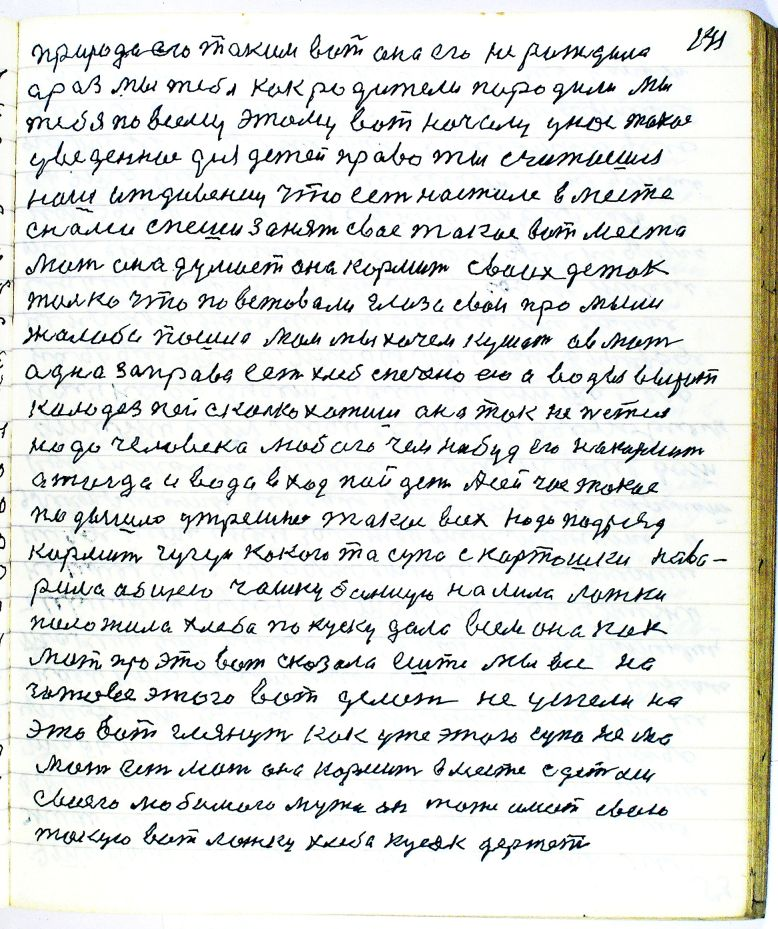 241
природа его таким вот она его не рождила
араз мы тебя как родители породили мы
тебя по всему этому вот началу у нас такое
уведенное для детей право ты считаешся
наш иждивенец что ест настиле в месте
снами спеши занят свое такое вот места
мат она думает она кормит своих деток
толко что повставали глаза свои промыли
жалоба пошла мам мы хочем кушат ав мат
адна заправа ест хлеб спечоно ею а воды вырыт
калодез пей сколко хотиш она так не пется
надо человека любого чем нибуд его накормит
атигда и вода в ход пой дет Аей чае такое
подышло утрешне такое всех надо подряд
кормит чугун какого та супа с картошки нава-
рила абщею чашку балшую налила ложки
положила хлеба по куску дала всем она как
мат про это вот сказала ешти мы все на
готовое этого вот делат не успели на
это вот глянут как уже этого супа не ма
мат ест мат она кормит в месте с детми
своего любимого мужа он тоже имет свою
такую вот ложку хлеба кусок держет